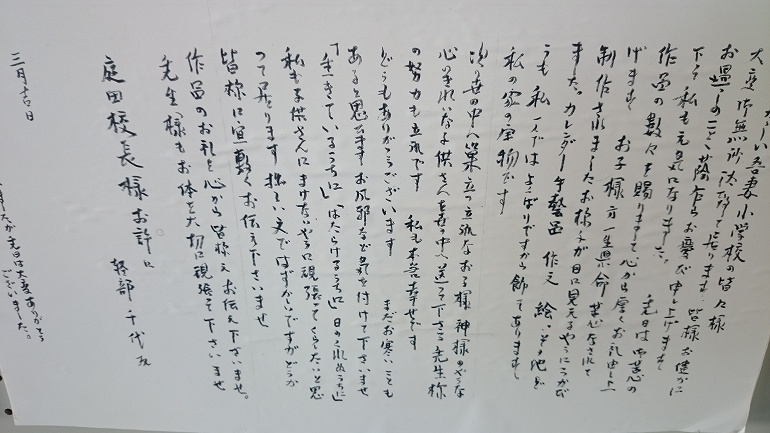 かーい吾妻小学校の皆々様
大変御無沙汰致して居ります 皆様お健かに
お過しのこと蔭乍らお慶び申し上げます
下さ 私も元気になりました 先日は御苦心の
作品の数々を賜りまして心から厚くお礼申し上
げます お子様方一生懸命 苦心なされて
制作されましたお様子が目に見えるやうにうかび
ました。カレンダー 手藝品 作文 絵
うも 私一人では よくばりですから飾ってあります
私の家の宝物です
次の世の中へ巣立つ立派なお子様 神様のやうな
心のきれいな子供さんを世の中へ送って下さる先生様
の努力も立派です 私も本当幸せです
どうもありがとうございます まだお寒いことも
あると思ひます お風邪など気を付けて下さいませ
「生きているうちに」「はたらけるうちに」日のくれぬうちに」
私も子供さんにまけないやうに頑張ってくらしたいと思
って居ります 拙い文ではずかしいですがどうか
皆様に宜敷くお伝え下さいませ
作品のお礼を心から皆様えお伝え下さいませ。
先生様もお体を大切に頑張って下さいませ
庭田校長様お許に
軽部千代友
三月十六日
先日は大変ありがとう
ございました。